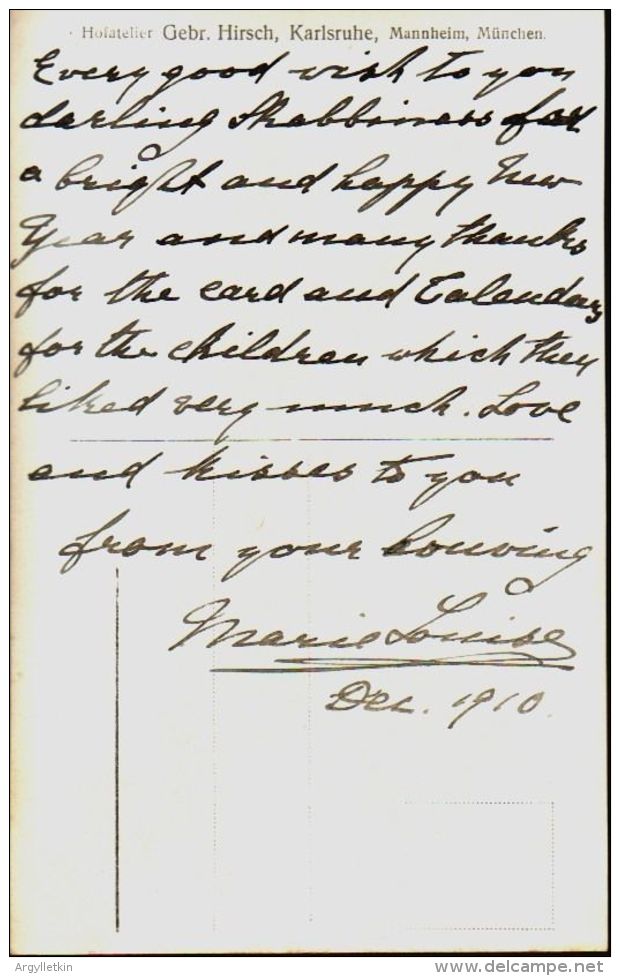 · Hofatelier Gebr. Hirsch, Karlsruhe, Mannheim, München.
Every good wish to you
darling Shabbiness for
a bright and happy New
Year and many thanks
for the card and Calendars
for the children which they
liked very much. Love
and kisses to you
from your louving
Marie Louise
Dec. 1910.
Argylletkin
www.delcampe.net